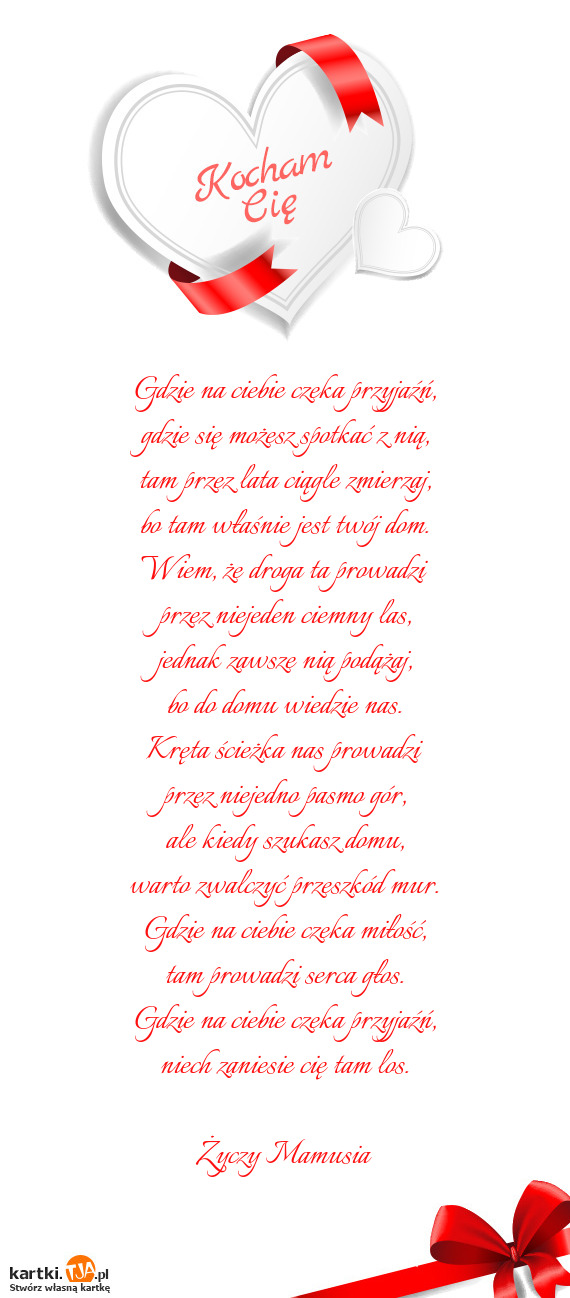 Kocham
Cię
Gdzie na ciebie czeka przyjaźń,
gdzie się możesz spotkać z nią,
tam przez lata ciągle zmierzaj,
bo tam właśnie jest twój dom.
Wiem, że droga ta prowadzi
przez niejeden ciemny las,
jednak zawsze nią podążaj,
bo do domu wiedzie nas.
Kręta ścieżka nas prowadzi
przez niejedno pasmo gór,
ale kiedy szukasz domu,
warto zwalczyć przeszkód mur.
Gdzie na ciebie czeka miłość,
tam prowadzi serca głos.
Gdzie na ciebie czeka przyjaźń,
niech zaniesie cię tam los.
Życzy Mamusia
kartki.TJA.pl
Stwórz własną kartkę